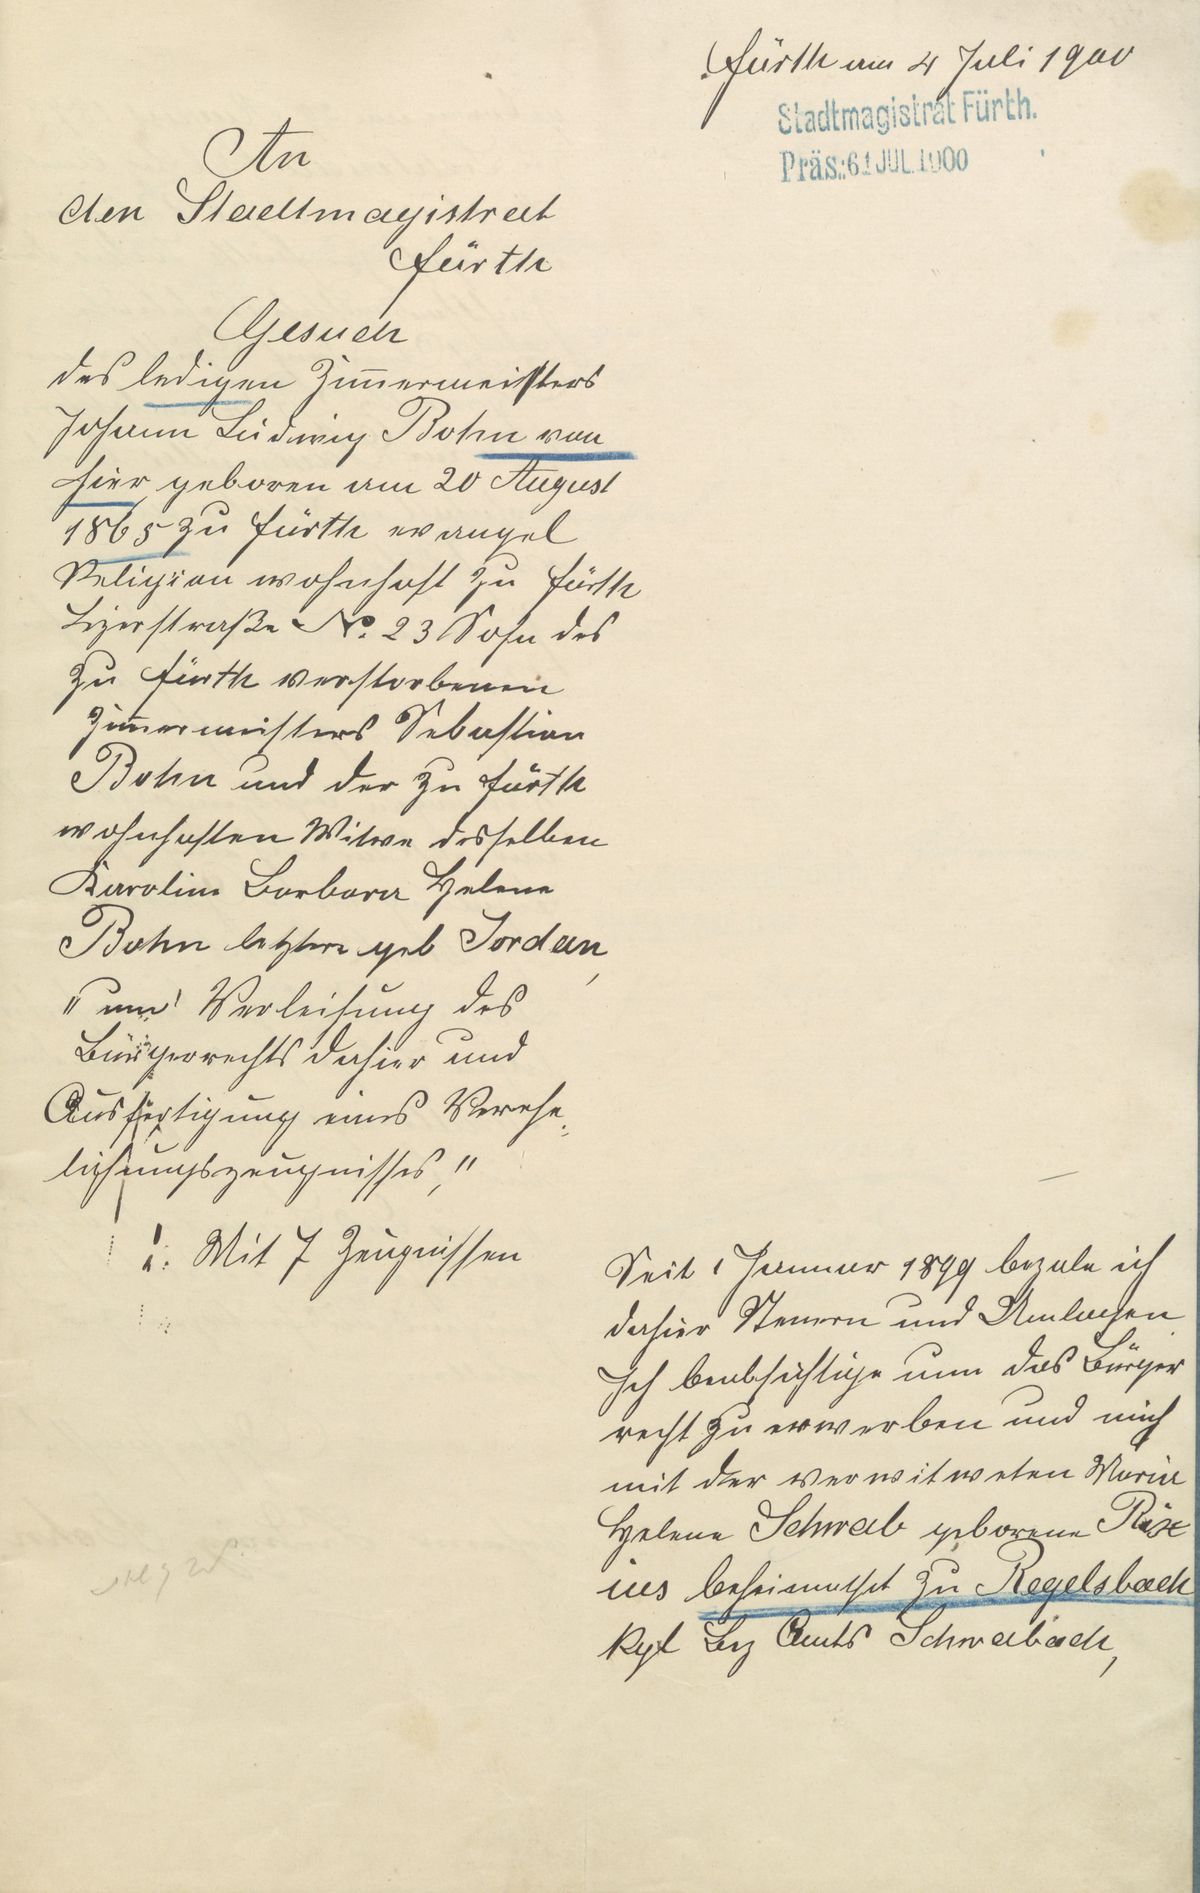 Fürth am 4 Juli 1900
Stadtmagistrat Fürth.
Präs.: 6. JUL. 1900
An
den Stadtmagistrat
Fürth
Gesuch
des ledigen Zimmermeisters
Johann Ludwig Bohn von
hier geboren am 20 August
1865 zu Fürth evangel
Religion wohnhaft zu Fürth
No. 23 Sohn des
zu Fürth verstorbenen
Zimmermeisters Sebastian
Bohn und der zu Fürth
wohnhaften Witwe desselben
Karolina Barbara Helene
Bohn letztere geb Jordan,
"um" Verleihung des
Bürgerrechts dahier und
Ausfertigung eines Verehe-
lichungszeugnisses,"
Mit 7 Zeugnissen
Seit 1 Januar 1899 bezale ich
dahier Steuern und Umlagen
Ich beabsichtige nun das Bürger
recht zu erwerben und mich
mit der verwitweten Maria
Helene Schwab geborene Rix
ius beheimathet zu Regelsbach
kgl Bez Amts Schwabach,